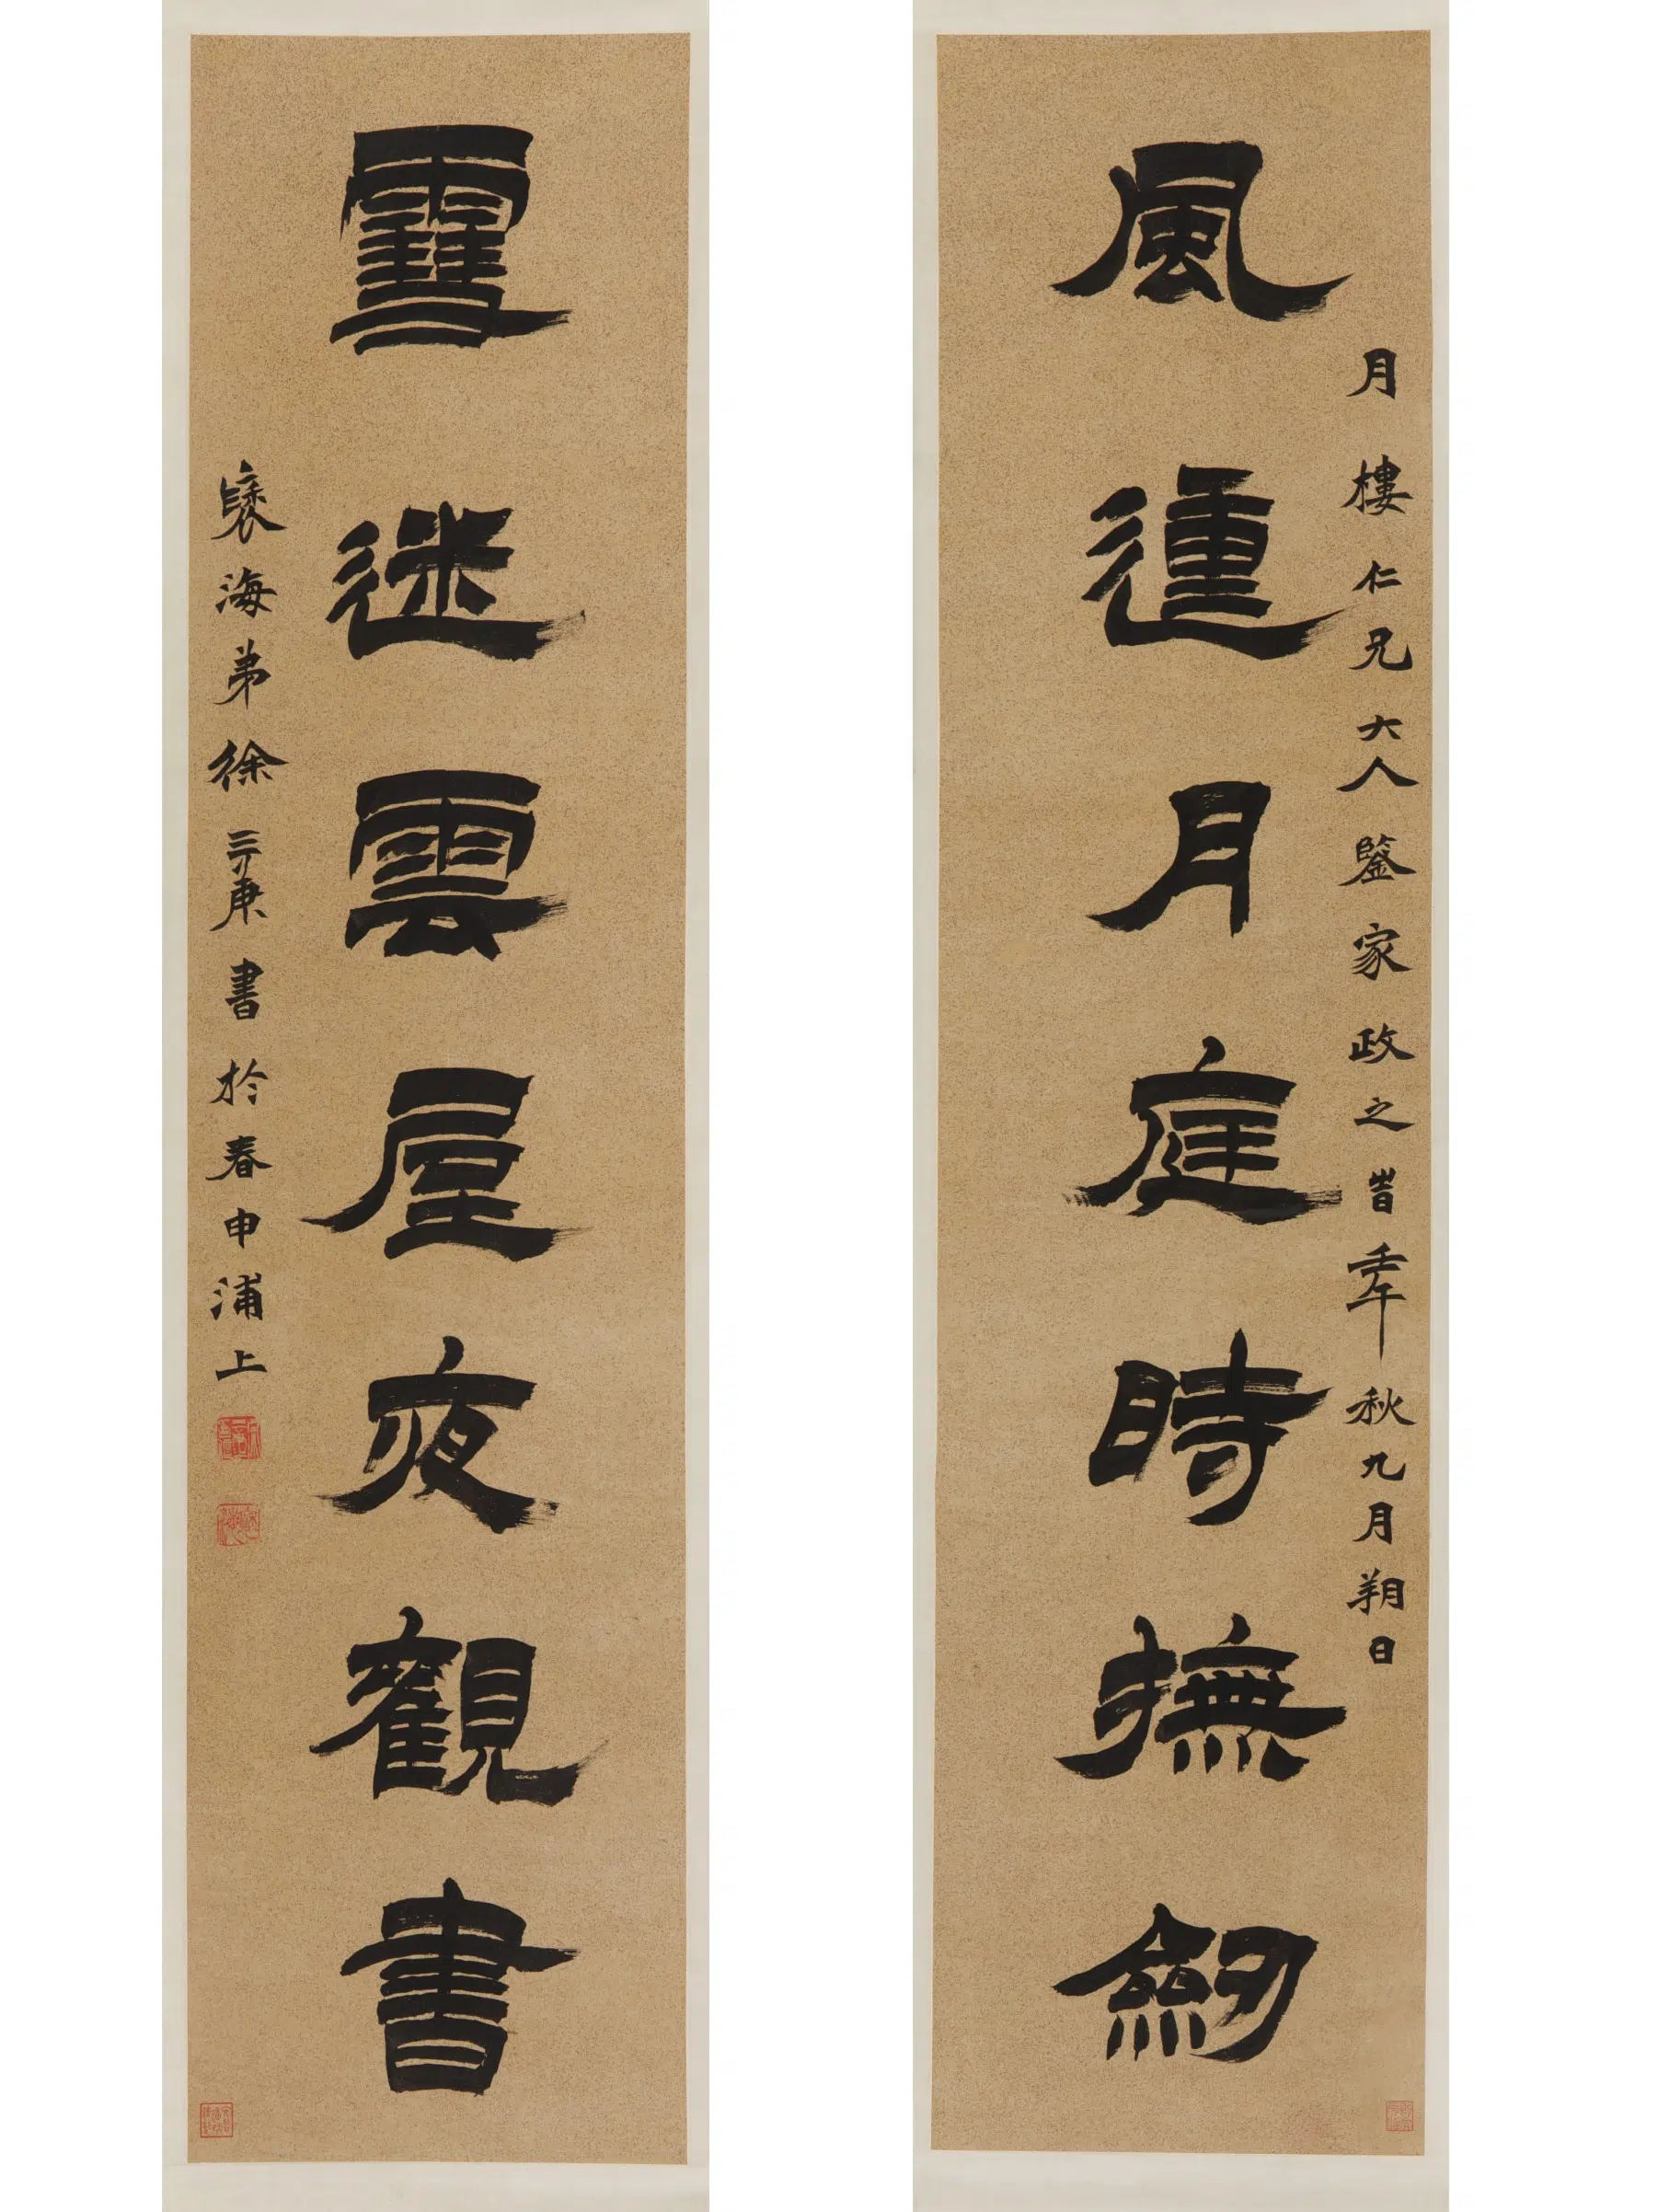 月樓仁兄大人鑒家政之旹壬午秋九月朔日
風動月庭時撫劒
雪迷雲屋夜觀書
褎海弟徐三庚書於春申浦上